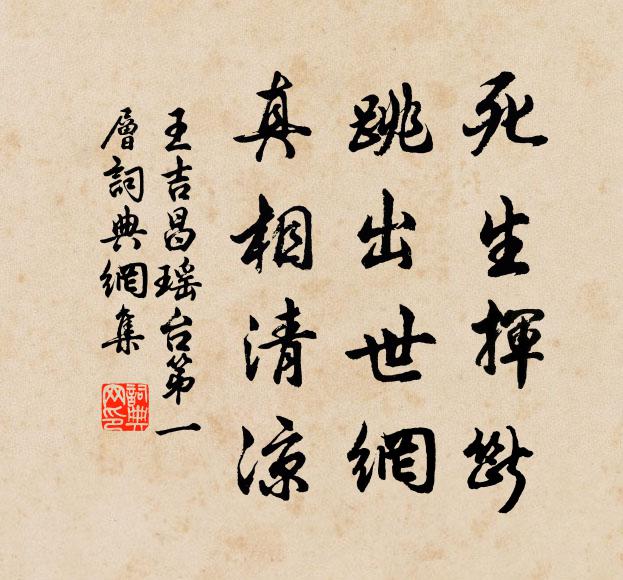 死生揮斷
跳出世網
真相清涼
王吉昌瑶台第一
層詞典網集
詞典
网印